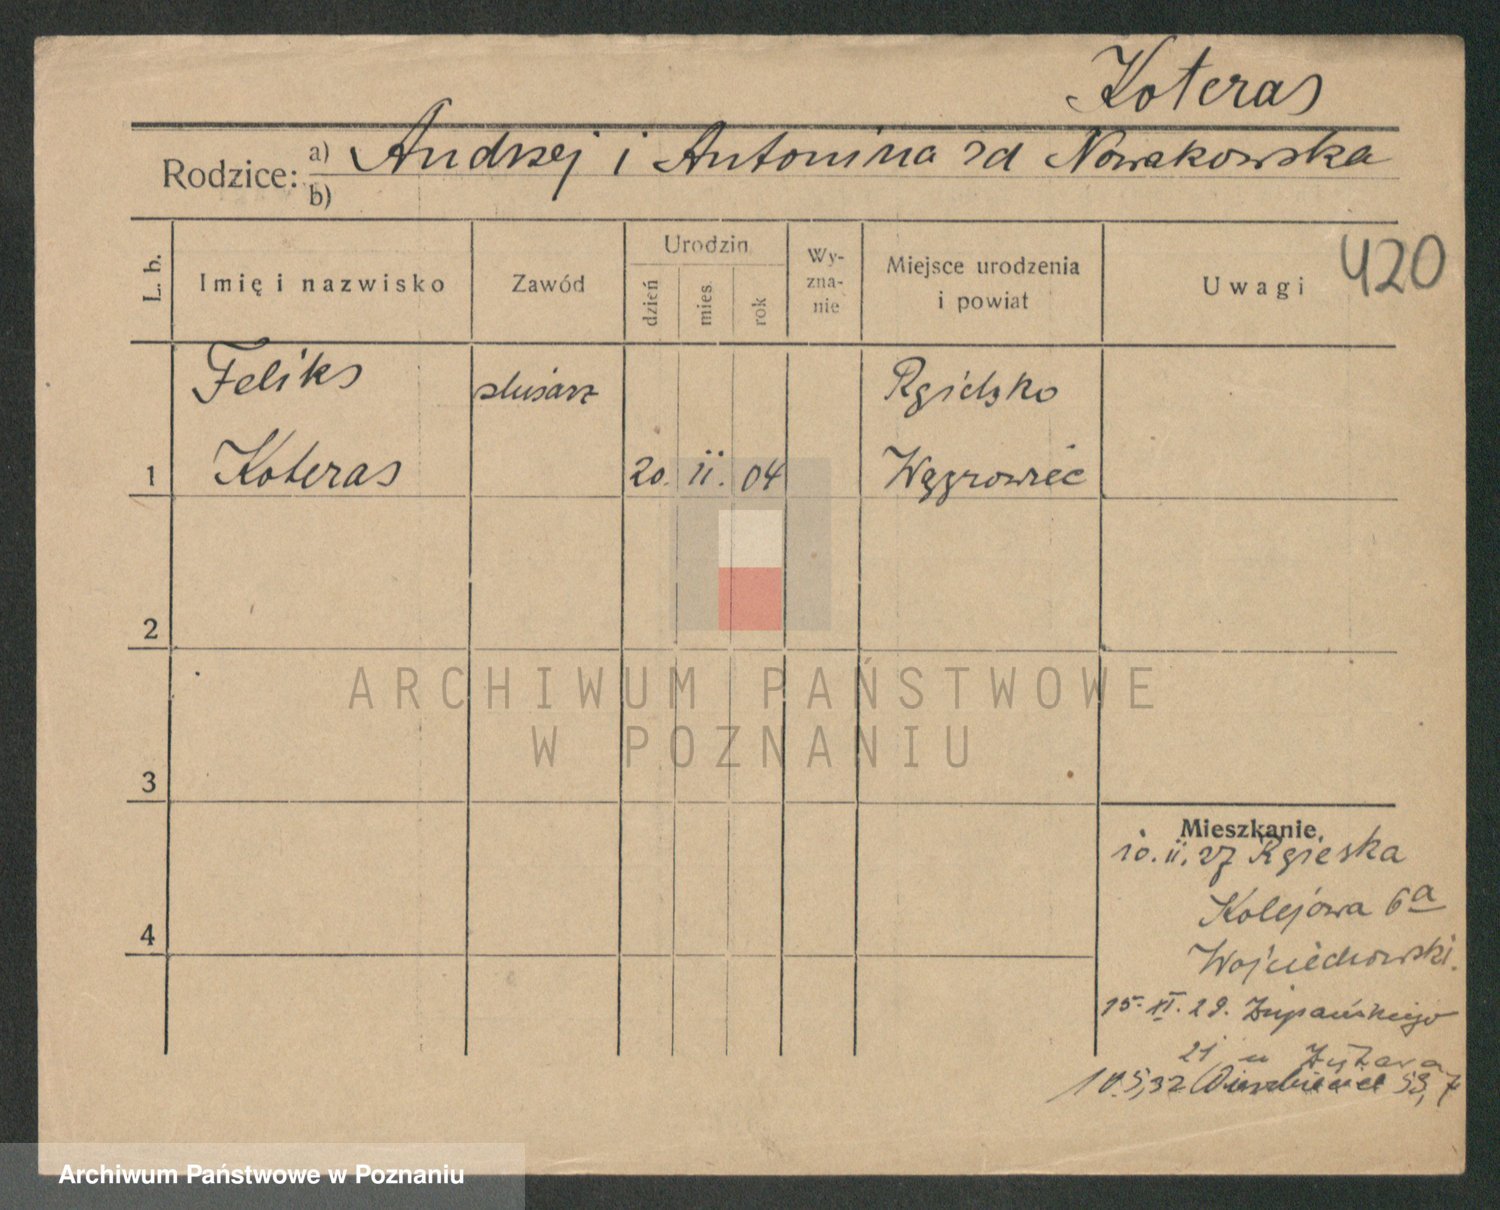 Koteras
Rodzice: a) Andrzej i Antonina zd Nowakowska
b)
L. b.
Imię i nazwisko
Zawód
Urodzin
dzień
mies.
rok
Wy-
zna-
nie
Miejsce urodzenia
i powiat
Uwagi
420
Feliks ślusarz Rgielsko
1 Koteras 20. II. 04 Wągrowiec
2
ARCHIWUM PAŃSTWOWE
W POZNANIU
3
Mieszkanie.
10. II. 27 Rgielska
Kolejowa 6a
4
Wojciechowski.
15. XI. 29. Żupańskiego
21 u
10.5,32 53, 7
Archiwum Państwowe w Poznaniu